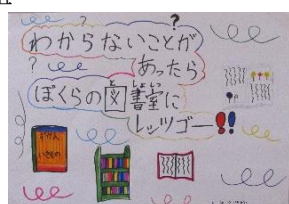 わからないことが
あったら
ぼくらの図書室に
レッツゴー!!
ずかん